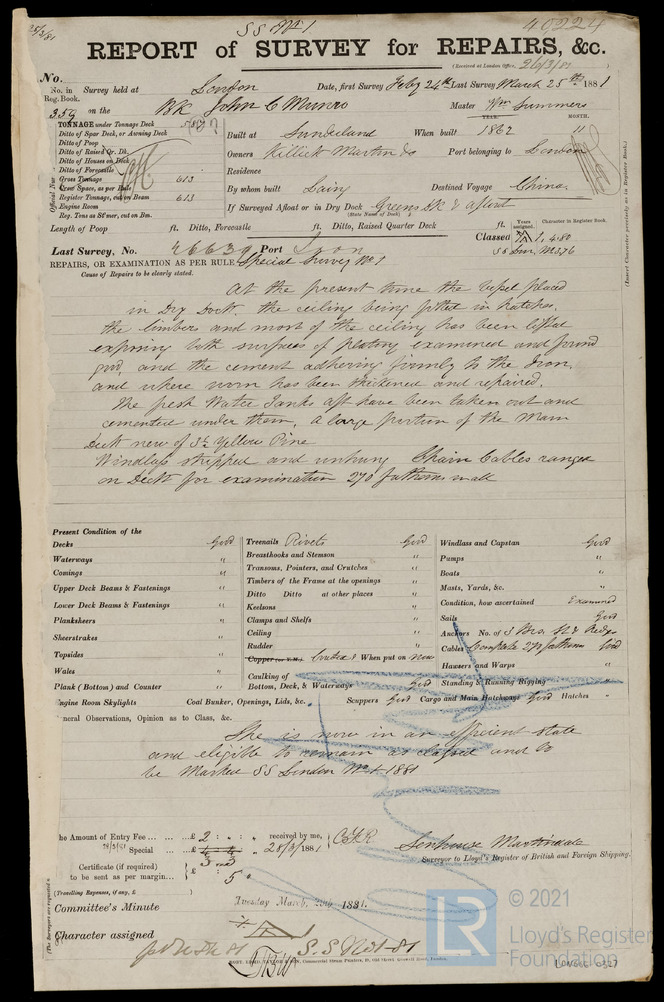 25/3/81
S S No 1
40224
REPORT of SURVEY for REPAIRS, &c.
(Received at London Office, 26/3/81
No.
No. in Reg. Book. Survey held at London Date, first Survey Feby 24th Last Survey March 25th 1881
359 on the BK John C Munro Master Wm Summers
TONNAGE under Tonnage Deck
Ditto of Spar Deck, or Awning Deck
Ditto of Poop
Ditto of Raised Qr. Dk.
Ditto of Houses on Deck
Ditto of Forecastle
Gross Tonnage 613
Crew Space, as per Rule
Register Tonnage, cut on Beam 613
Engine Room
Reg. Tons as St'mer, cut on Bm.
Official No.
YEAR. MONTH.
Built at Sunderland When built 1862 11
Owners Killick Martin & Co Port belonging to London
Residence
By whom built Laing Destined Voyage China
If Surveyed Afloat or in Dry Dock Greens Dk & afloat
(State Name of Dock)
Length of Poop ft. Ditto, Forecastle ft. Ditto, Raised Quarter Deck ft.
Years assigned. Character in Register Book.
Classed A 1, 4.80
SS Lon, No3,76
(Insert Character precisely as in Register Book.)
Last Survey, No. 46639 Port Lon
REPAIRS, OR EXAMINATION AS PER RULE Special Survey No 1
Cause of Repairs to be clearly stated.
At the present time the vessel placed
in Dry Dock. the ceiling being fitted in hatches,
the limbers and most of the ceiling has been lifted
exposing both surfaces of plating examined and found
good, and the cement adhering firmly to the Iron,
and where worn has been thickened and repaired.
The fresh Water Tanks aft have been taken out and
cemented under them, a large portion of the Main
Deck new of 3½ Yellow Pine
Windlass stripped and unhung Chain Cables ranged
on Deck for examination 270 fathoms in all
Present Condition of the
Decks Good
Waterways "
Comings "
Upper Deck Beams & Fastenings "
Lower Deck Beams & Fastenings "
Planksheers "
Sheerstrakes "
Topsides "
Wales "
Plank (Bottom) and Counter "
Treenails Rivets Good
Breasthooks and Stemson "
Transoms, Pointers, and Crutches "
Timbers of the Frame at the openings "
Ditto Ditto at other places "
Keelsons "
Clamps and Shelfs "
Ceiling "
Rudder "
When put on new
Caulking of Bottom, Deck, & Waterways Good
Windlass and Capstan Good
Pumps "
Boats "
Masts, Yards, &c. "
Condition, how ascertained Examined
Sails Good
Anchors No. of 3 Bro.
Cables Complete 270 fathoms Good
Hawsers and Warps "
Standing & Running Rigging "
Engine Room Skylights Coal Bunker, Openings, Lids, &c. Scuppers Good Cargo and Main Hatchways Good Hatches "
General Observations, Opinion as to Class, &c.
She is now in an efficient state
and eligible to remain as classed and to
be Marked SS London No 1 1881
The Amount of Entry Fee ... £ 2 : " : " received by me,
28/3/81 Special ... £ 28/3/1881
Certificate (if required) to be sent as per margin... £ : 5 "
(Travelling Expenses, if any, £ )
Senhouse Martindale
Surveyor to Lloyd's Register of British and Foreign Shipping.
Committee's Minute Tuesday March, 29th, 1881.
Character assigned A 1
S.S. No 1 - 81
© 2021
LR
Lloyd's Register
Foundation